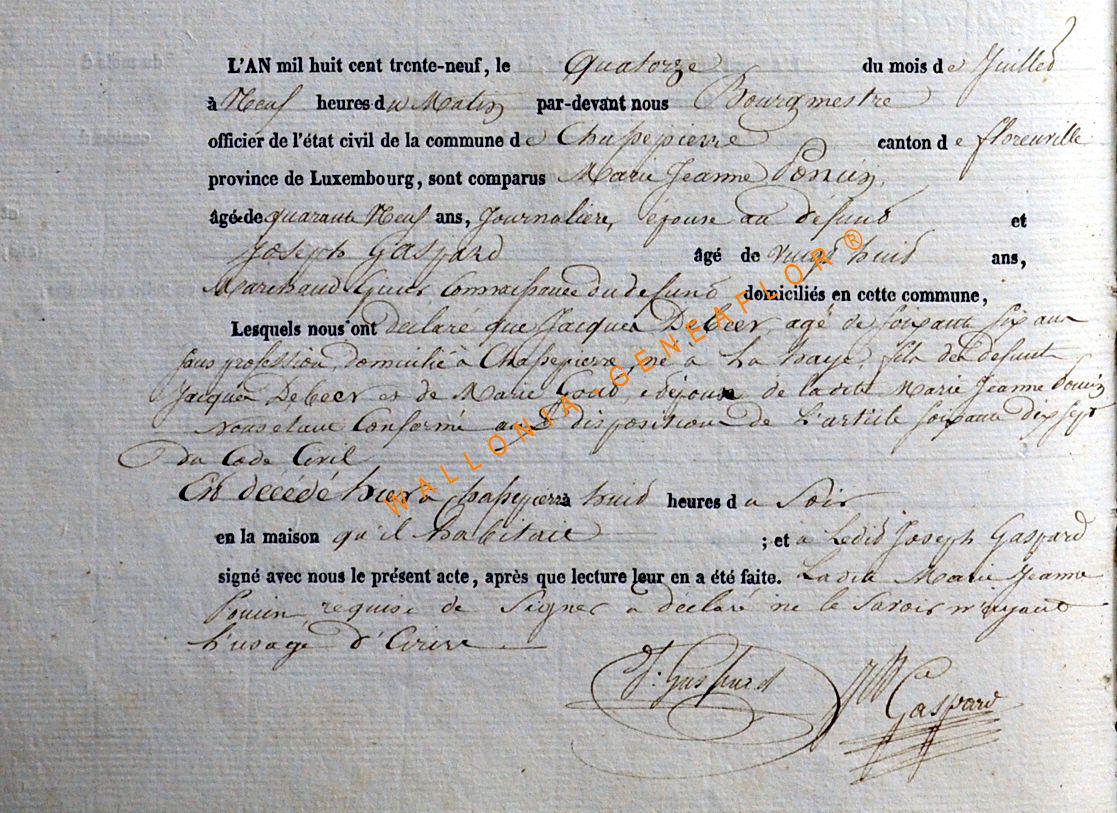 L'AN mil huit cent trente-neuf, le Quatorze du mois de Juillet
à Neuf heures du Matin par-devant nous Bourgmestre
officier de l'état civil de la commune de Chassepierre canton de florenville
province de Luxembourg, sont comparus Marie Jeanne Poncin
âgé de quarante Neuf ans, Journaliere, épouse au défunt et
Joseph Gaspard âgé de vingt huit ans,
Marchand Connaissance du defunt domiciliés en cette commune,
Lesquels nous ont déclaré que Jacques Debeer, agé de soixante six ans
sans profession, domicilié à Chassepierre né à La haye, fils des défunts
Jacques Debeer et de Marie époux de ladite Marie Jeanne Poncin
Nous étant Conformé aux disposition de L'article soixante dix sept
du Code Civil
Est décédé hier à Chassepierre à huit heures du Soir
en la maison qu'il habitait ; et a Ledit Joseph Gaspard
signé avec nous le présent acte, après que lecture leur en a été faite. Ladite Marie Jeanne
Poncin, requise de Signer a déclaré ne le Savoir n'ayant
L'usage d'Ecrire
J: Gaspard Gaspard
WALLONIA GENEAFLOR ®